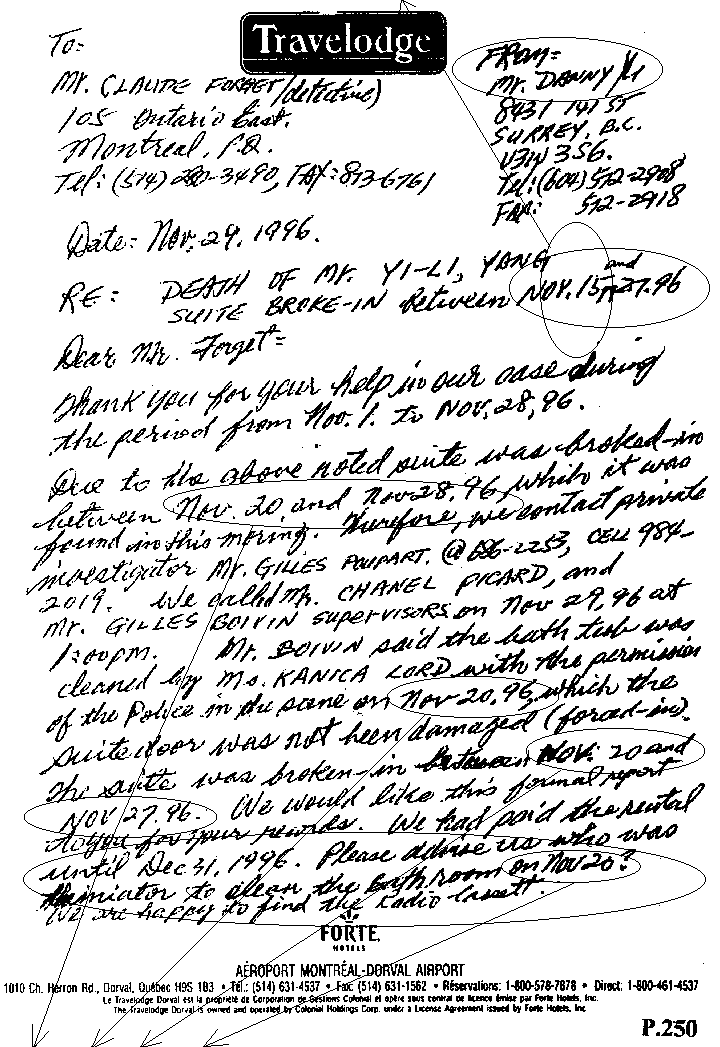 Travelodge
To:
Mr. CLAUDE FORGET (detective)
105 Ontario East.
Montreal, P.Q.
Tel: (514) 280-3490, FAX: 873-6761
FROM:
Mr. DANNY
8431 141 ST
SURREY, B.C.
V3W 3S6.
Tel: (604) 572-2908
FAX: 572-2918
Date: Nov. 29, 1996.
RE: DEATH OF Mr. YI-LI, YANG and
SUITE BROKE-IN between NOV. 15 27.96
Dear Mr. Forget:
Thank you for your help in our case during
the period from Nov. 1. to NOV, 28, 96.
Due to the above noted suite was broked-in
between Nov. 20 and Nov 28, 96, which it was
found in this morning. Therefore, we contact private
investigator Mr. GILLES POUPART. @ 686-2253, CELL 984-
2019. We called Mr. CHANEL PICARD, and
Mr. GILLES BOIVIN SUPERVISORS on Nov 29, 96 at
1:00pm. Mr. BOIVIN said the bath tub was
cleaned by Ms. KANICA LORD with the permission
of the Police in the scene on Nov 20, 96, which the
suite door was not been damaged (forced-in).
The suite was broken-in between NOV. 20 and
NOV 27.96. We would like this formal report
to you for your records. We had paid the rental
until Dec 31, 1996. Please advise us who was
to clean the bath room on Nov 20?
We are happy to find the Radio Cassett.
FORTE
HOTELS
AÉROPORT MONTRÉAL-DORVAL AIRPORT
1010 Ch. Herron Rd., Dorval, Québec H9S 1B3 • Tél.: (514) 631-4537 • Fax: (514) 631-1562 • Réservations: 1-800-578-7878 • Direct: 1-800-461-4537
Le Travelodge Dorval est la propriété de Corporation de Gestions Colonial et opéré sous contrat de licence émise par Forte Hotels, Inc.
The Travelodge Dorval is owned and operated by Colonial Holdings Corp. under a License Agreement issued by Forte Hotels, Inc
P.250